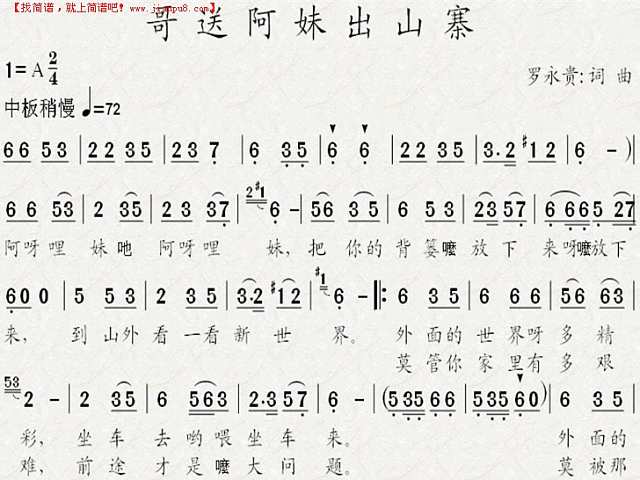 【找简谱，就上简谱吧！www.jianpu8.com】
哥送阿妹出山寨
1=A 2/4
罗永贵:词 曲
中板稍慢 ♩=72
6 6 5 3 | 2 2 3 5 | 2 2 3 7 | 6 3 5 | 6 6 | 2 2 3 5 | 3·2 #1 2 | 6 - ) |
6 6 5 3 | 2 3 5 | 2 2 3 3 7 | 2 #1 6 - | 5 6 3 5 | 6 6 5 3 | 2 3 5 7 | 6 6 6 5 2 7 |
阿呀哩 妹吔 阿呀哩 妹，把你的背篓嚒放下来呀嚒放下
6 0 0 | 5 5 3 | 2 3 5 | 3·2 #1 2 | #1 6 - |: 6 3 5 | 6 6 6 | 5 6 6 3 |
来， 到山外看一看新世界。 外面的世界呀多精
莫管你家里有多艰
53 2 - | 2 3 5 | 6 5 6 3 | 2·3 5 7 | 6 - | ( 5 3 5 6 6 | 5 3 5 6 0 ) | 6 3 5 |
彩， 坐车去哟喂坐车来。 外面的
难， 前途才是嚒大问题。 莫被那